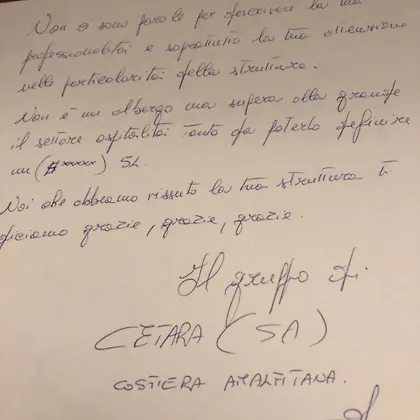 Non ci sono parole per descrivere la tua
professionalità e soprattutto la tua attenzione
nelle particolarità della struttura.
Non è un albergo ma supera alla grande
il settore ospitalità tanto da poterlo definire
un (#*****) SL.
Noi che abbiamo vissuto la tua struttura ti
diciamo grazie, grazie, grazie.
Il gruppo di:
CETARA (SA)
COSTIERA AMALFITANA.